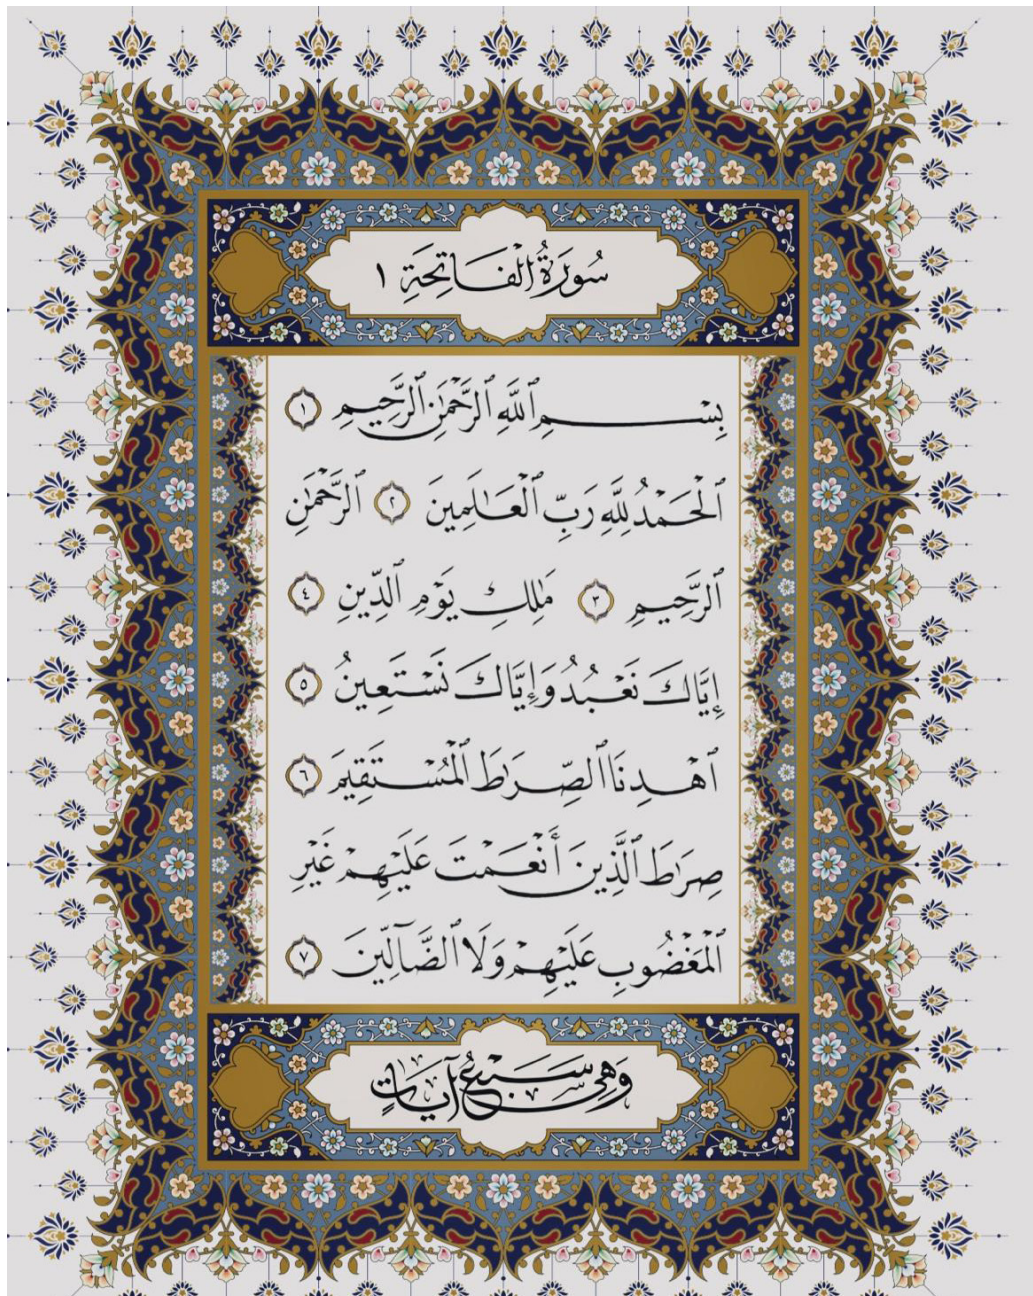 سُورَةُ الْفَاتِحَةِ ١
بِسْمِ ٱللَّهِ ٱلرَّحْمَٰنِ ٱلرَّحِيمِ ١
ٱلْحَمْدُ لِلَّهِ رَبِّ ٱلْعَٰلَمِينَ ٢ ٱلرَّحْمَٰنِ
ٱلرَّحِيمِ ٣ مَٰلِكِ يَوْمِ ٱلدِّينِ ٤
إِيَّاكَ نَعْبُدُ وَإِيَّاكَ نَسْتَعِينُ ٥
ٱهْدِنَا ٱلصِّرَٰطَ ٱلْمُسْتَقِيمَ ٦
صِرَٰطَ ٱلَّذِينَ أَنْعَمْتَ عَلَيْهِمْ غَيْرِ
ٱلْمَغْضُوبِ عَلَيْهِمْ وَلَا ٱلضَّآلِّينَ ٧
وَهِيَ سَبْعُ آيَاتٍ